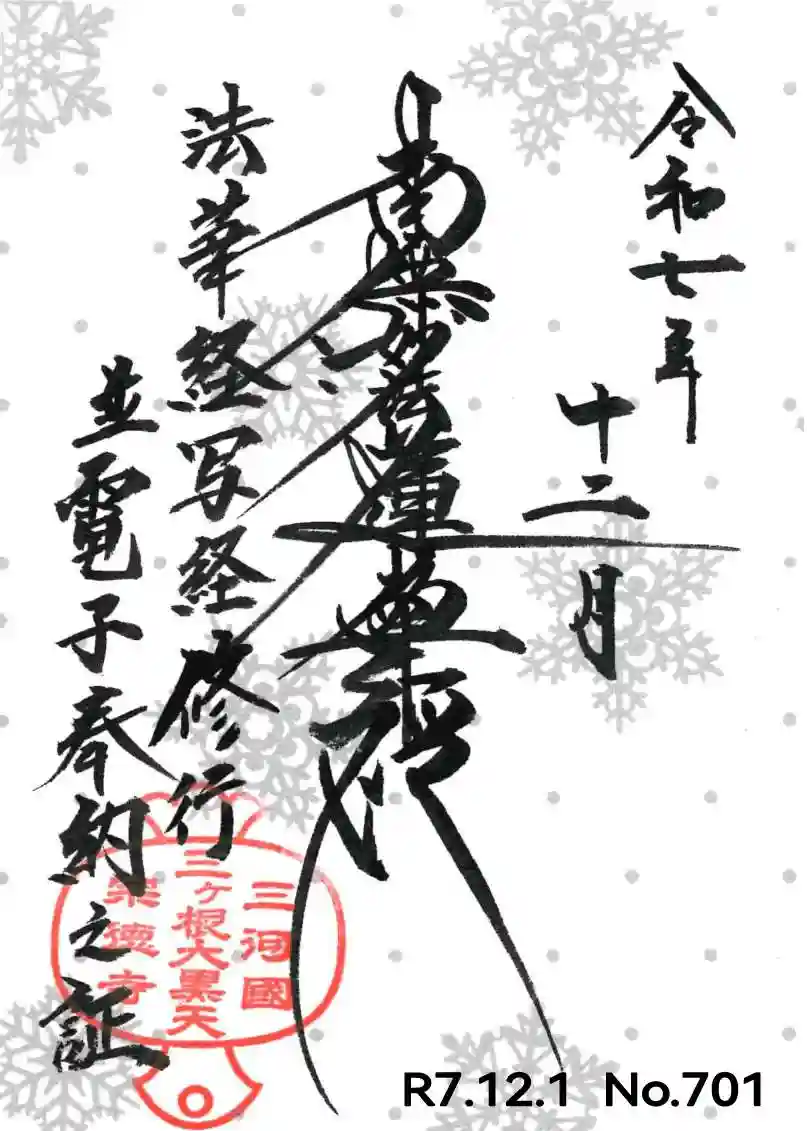 令和七年
十二月
南無妙法蓮華経
法華経写経修行
並電子奉納之証
三河國
三ヶ根大黒天
崇徳寺
R7.12.1 No.701